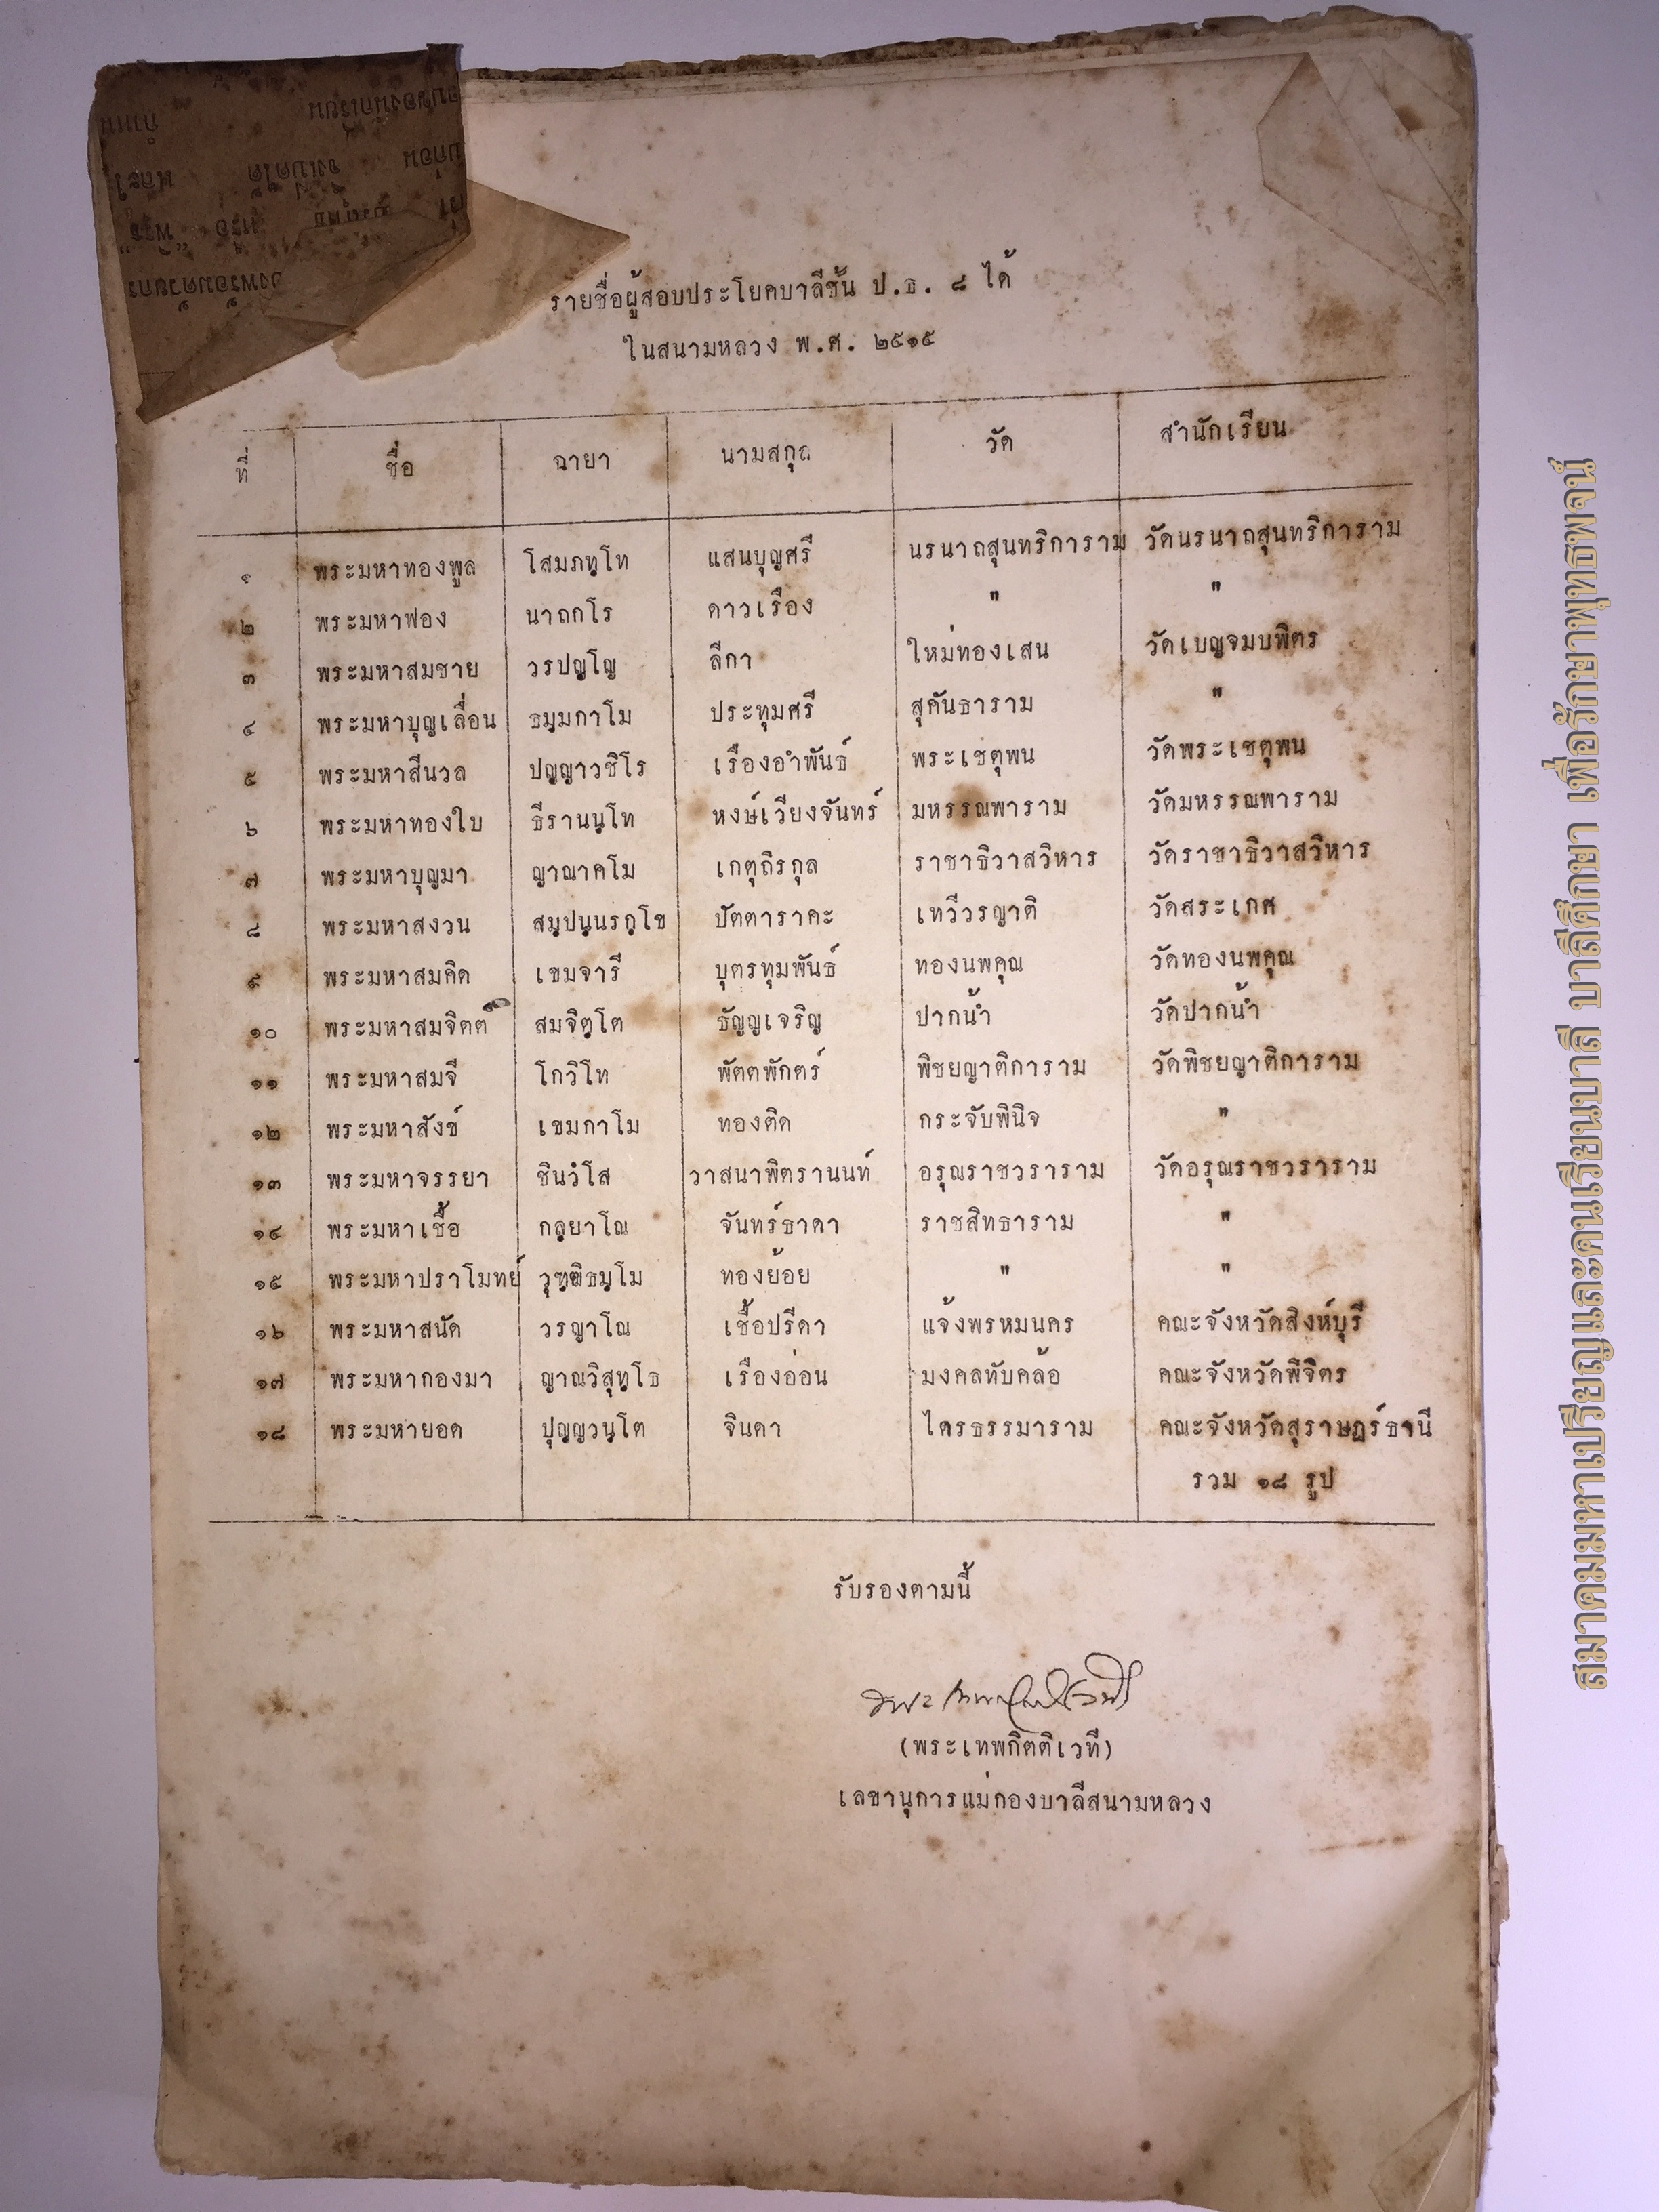 รายชื่อผู้สอบประโยคบาลีชั้น ป.ธ. ๘ ได้
ในสนามหลวง พ.ศ. ๒๕๑๕
ที่ ชื่อ ฉายา นามสกุล วัด สำนักเรียน
๑ พระมหาทองพูล โสมภทฺโท แสนบุญศรี นรนาถสุนทริการาม วัดนรนาถสุนทริการาม
๒ พระมหาฟอง นาถกโร ดาวเรือง " "
๓ พระมหาสมชาย วรปญฺโญ ลีกา ใหม่ทองเสน วัดเบญจมบพิตร
๔ พระมหาบุญเลื่อน ธมฺมกาโม ประทุมศรี สุคันธาราม "
๕ พระมหาสีนวล ปญฺญาวชิโร เรืองอำพันธ์ พระเชตุพน วัดพระเชตุพน
๖ พระมหาทองใบ ธีรานนฺโท หงษ์เวียงจันทร์ มหรรณพาราม วัดมหรรณพาราม
๗ พระมหาบุญมา ญาณาคโม เกตุถิรกุล ราชาธิวาสวิหาร วัดราชาธิวาสวิหาร
๘ พระมหาสงวน สมฺปนฺนรกฺโข ปัตตาราคะ เทวีวรญาติ วัดสระเกศ
๙ พระมหาสมคิด เขมจารี บุตรทุมพันธ์ ทองนพคุณ วัดทองนพคุณ
๑๐ พระมหาสมจิตต์ สมจิตฺโต ธัญญเจริญ ปากน้ำ วัดปากน้ำ
๑๑ พระมหาสมจี โกวิโท พัตตพักตร์ พิชยญาติการาม วัดพิชยญาติการาม
๑๒ พระมหาสังข์ เขมกาโม ทองติด กระจับพินิจ "
๑๓ พระมหาจรรยา ชินวํโส วาสนาพิตรานนท์ อรุณราชวราราม วัดอรุณราชวราราม
๑๔ พระมหาเชื้อ กลฺยาโณ จันทร์ธาดา ราชสิทธาราม "
๑๕ พระมหาปราโมทย์ ทองย้อย " "
๑๖ พระมหาสนัด วรญาโณ เชื้อปรีดา แจ้งพรหมนคร คณะจังหวัดสิงห์บุรี
๑๗ พระมหากองมา ญาณวิสุทฺโธ เรืองอ่อน มงคลทับคล้อ คณะจังหวัดพิจิตร
๑๘ พระมหายอด ปุญฺญวนฺโต จินดา ไตรธรรมาราม คณะจังหวัดสุราษฎร์ธานี
รวม ๑๘ รูป
รับรองตามนี้
(พระเทพกิตติเวที)
เลขานุการแม่กองบาลีสนามหลวง
สมาคมมหาเปรียญและคนเรียนบาลี บาลีศึกษา เพื่อรักษาพุทธพจน์